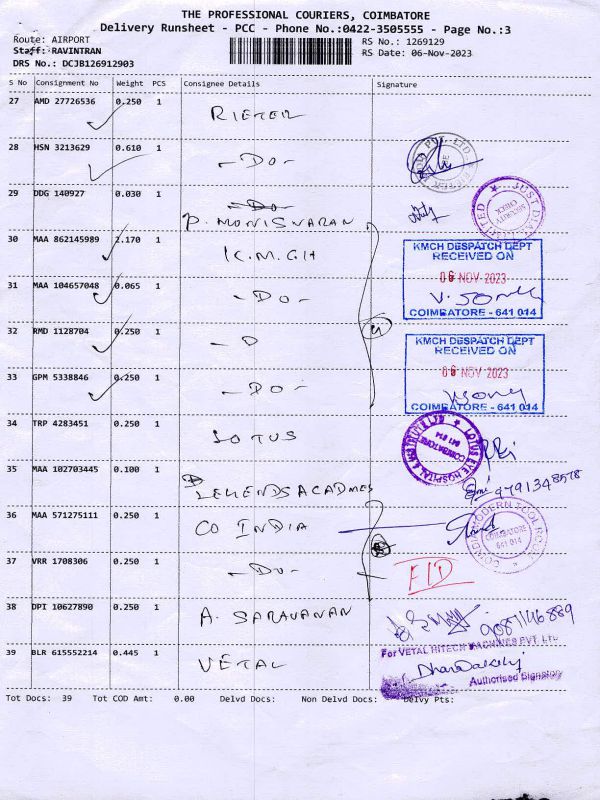 THE PROFESSIONAL COURIERS, COIMBATORE
Delivery Runsheet - PCC - Phone No.:0422-3505555 - Page No.:3
Route: AIRPORT
RS No.: 1269129
Staff: RAVINTRAN
RS Date: 06-Nov-2023
DRS No.: DCJB126912903
S No Consignment No Weight PCS Consignee Details Signature
27 AMD 27726536 0.250 1 RIETER
28 HSN 3213629 0.610 1 -DO-
29 DDG 140927 0.030 1 -DO-
P. MONISWARAN
JUST DIAL LIMITED
SECURITY CHECK
30 MAA 862145989 2.170 1 K.M.CH
KMCH DESPATCH DEPT
RECEIVED ON
06 NOV 2023
COIMBATORE - 641 014
31 MAA 104657048 0.065 1 -DO-
32 RMD 1128704 0.250 1 -D
KMCH DESPATCH DEPT
RECEIVED ON
06 NOV 2023
COIMBATORE - 641 014
33 GPM 5338846 0.250 1 -DO-
34 TRP 4283451 0.250 1 LOTUS
LOTUS EYE HOSPITAL & INSTITUTE LTD
COIMBATORE
641 014
35 MAA 102703445 0.100 1
9791348578
36 MAA 571275111 0.250 1 CO INDIA
COINDIA MODERN TOOL ROOM
COIMBATORE
641 014
37 VRR 1708306 0.250 1 -DO-
38 DPI 10627890 0.250 1 A. SARAVANAN
9087146889
39 BLR 615552214 0.445 1 VETAL
For VETAL HITECH MACHINES PVT. LTD
Authorised Signatory
Tot Docs: 39 Tot COD Amt: 0.00 Delvd Docs: Non Delvd Docs: Delvy Pts: